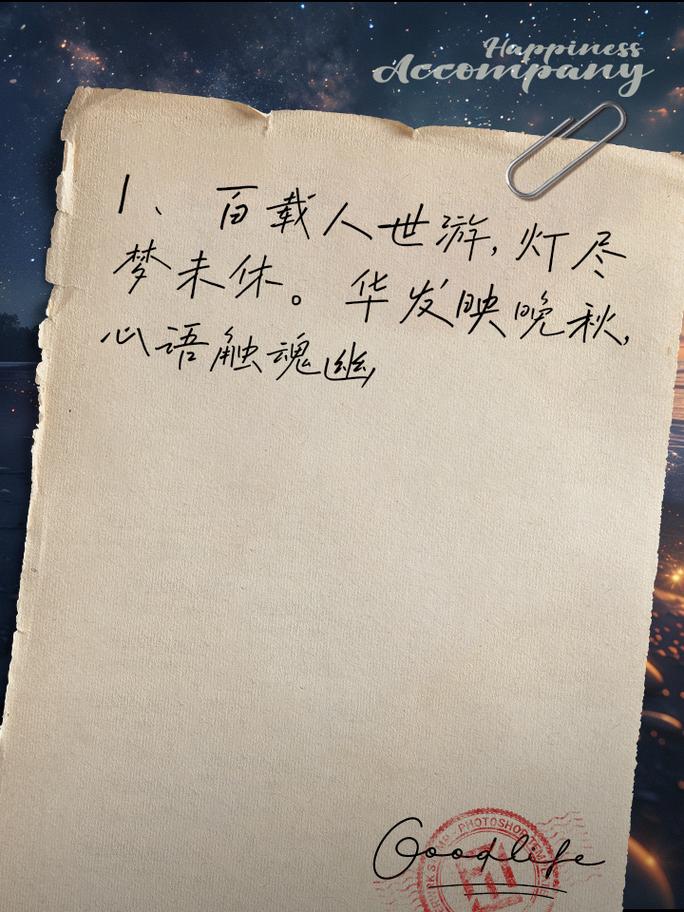 Happiness
Accompany
1、百载人世游,灯尽
梦未休。华发映晚秋,
心语触魂幽
PHOTOSHOP
Goodlife